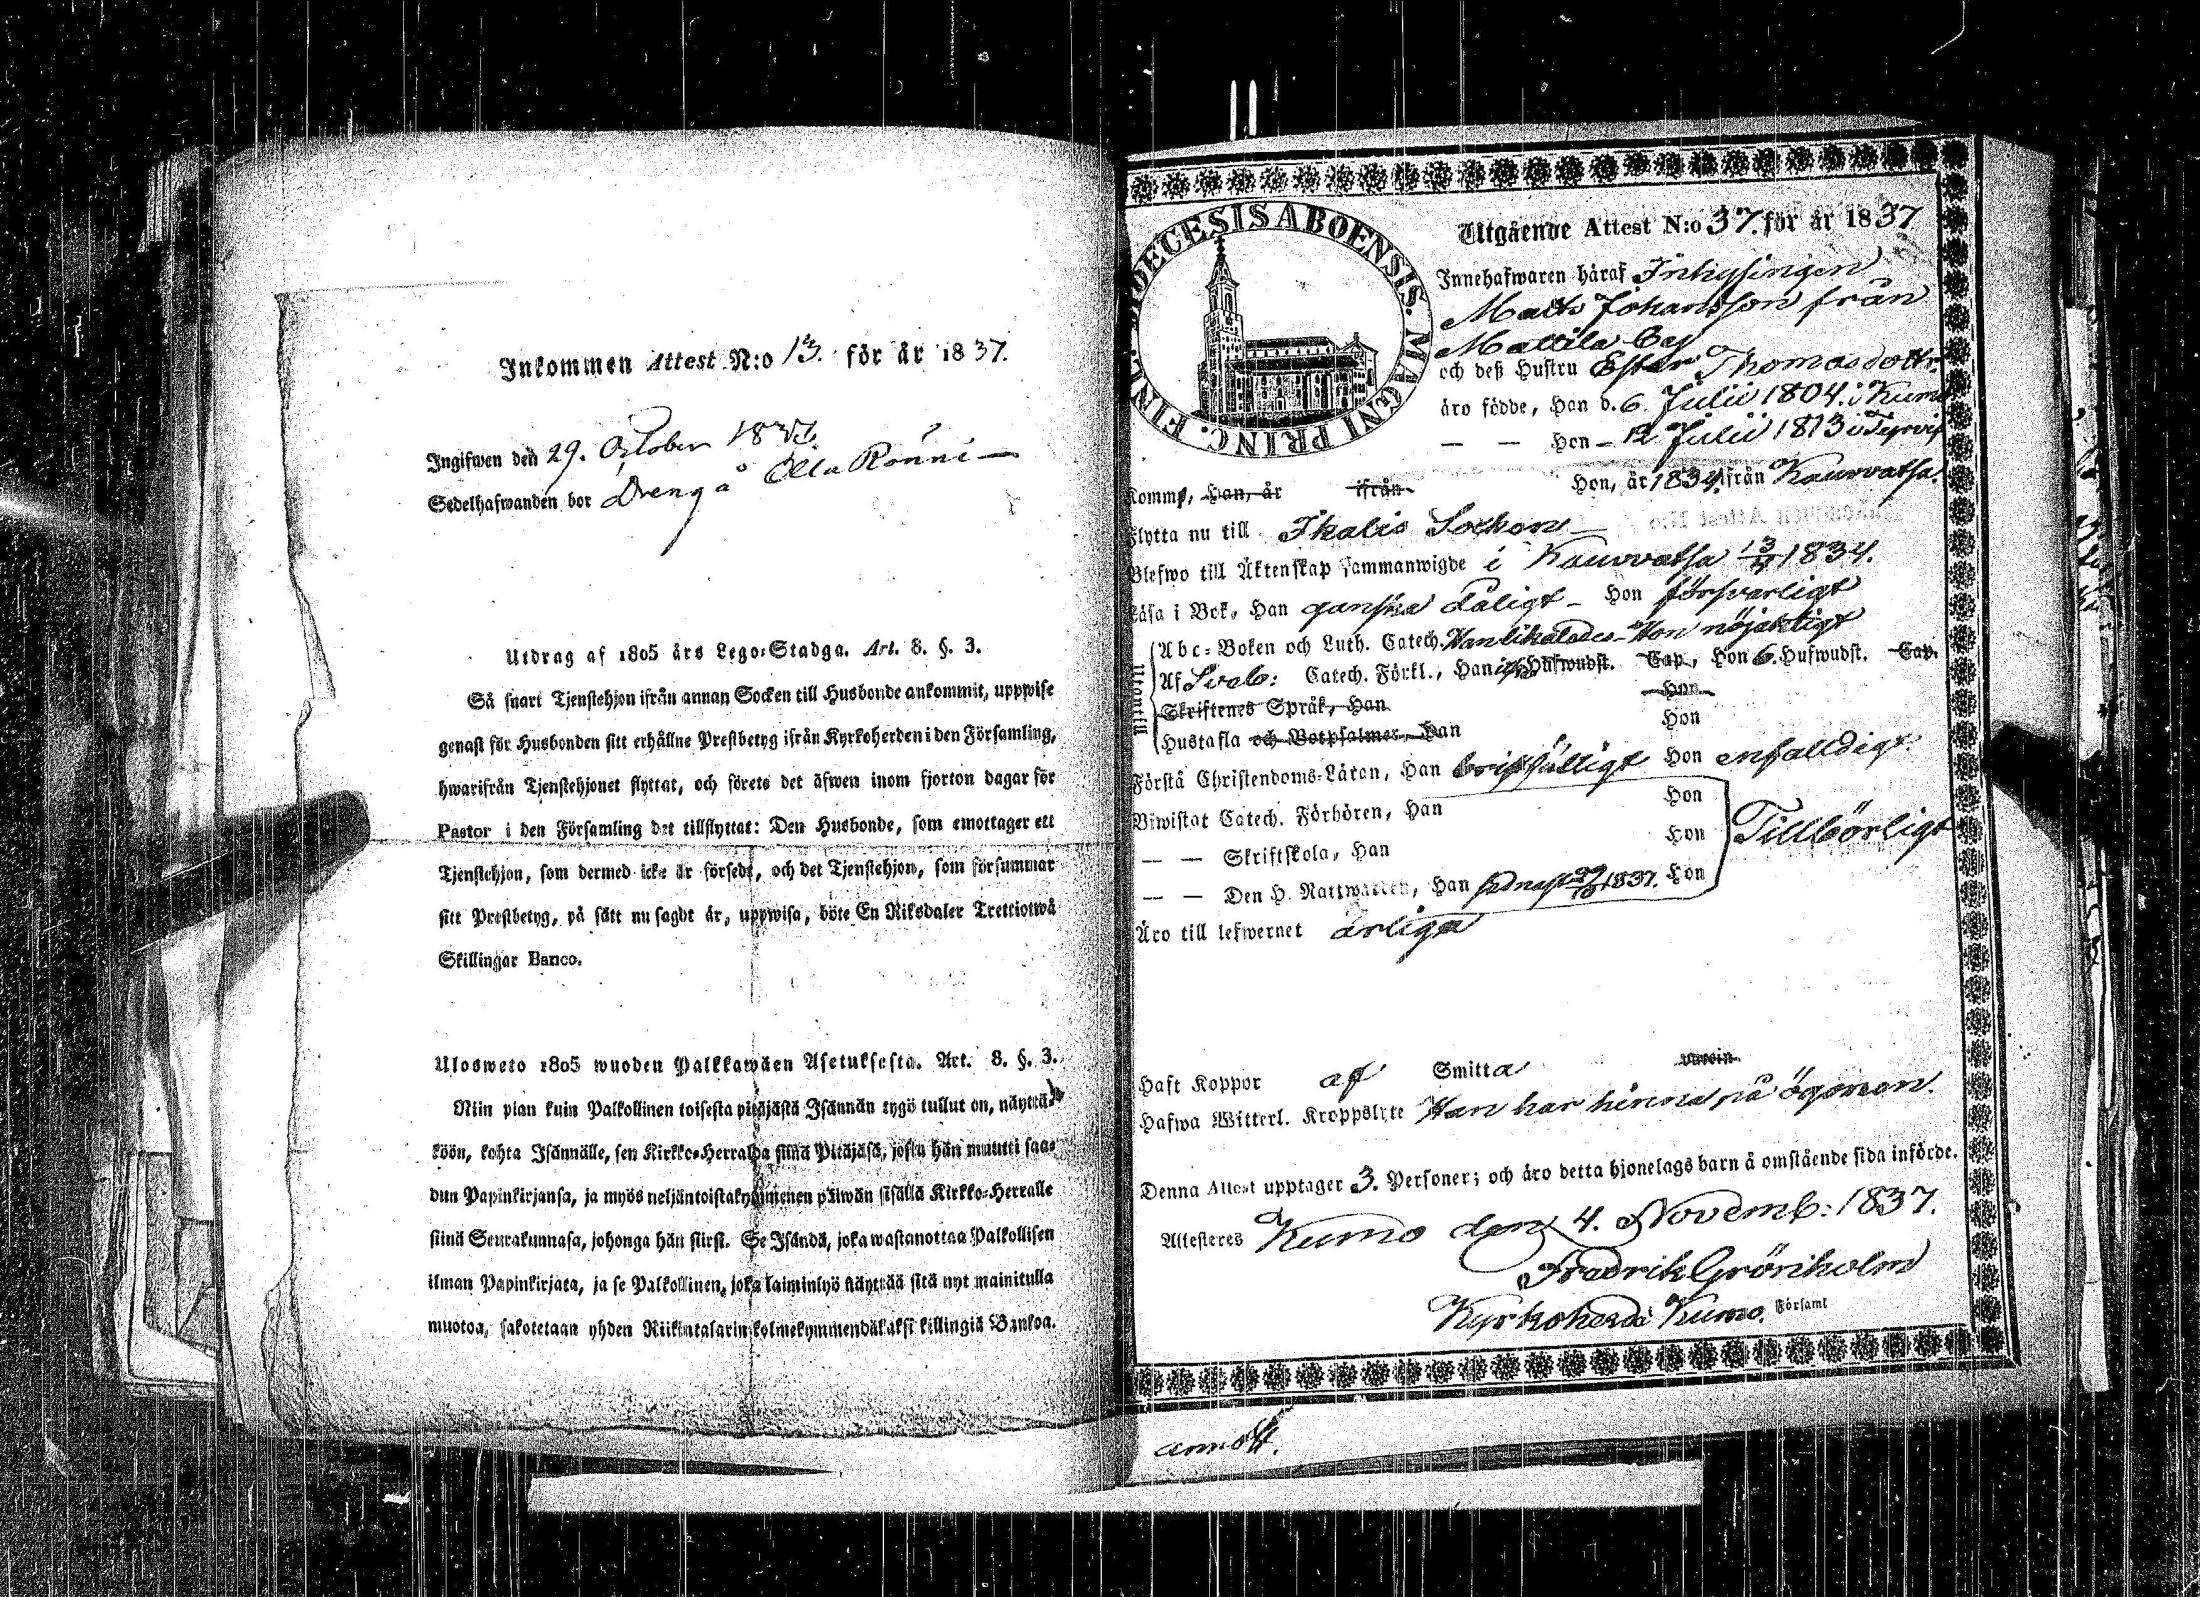 Inkommen Attest N:o 13. för år 1837.
Ingifwen den 29. October 1837.
Sedelhafwanden bor Dreng å Olla Rönni
Utdrag af 1805 års Lego-Stadga. Art. 8. §. 3.
Så snart Tjenstehjon ifrån annan Socken till Husbonde ankommit, uppwise
genast för Husbonden sitt erhållne Prestbetyg ifrån Kyrkoherden i den Församling,
hwarifrån Tjenstehjonet flyttat, och förete det äfwen inom fjorton dagar för
Pastor i den Församling det tillflyttat: Den Husbonde, som emottager ett
Tjenstehjon, som dermed icke är försedt, och det Tjenstehjon, som försummar
sitt Prestbetyg, på sätt nu sagdt är, uppwisa, böte En Riksdaler Trettiotwå
Skillingar Banco.
Ulosweto 1805 wuoden Palkkawäen Asetuksesta. Art. 8. §. 3.
Niin pian kuin Palkollinen toisesta pitäjästä Isännän tygö tullut on, näyttä-
köön, kohta Isännälle, sen Kirkko-Herralda siinä Pitäjäsä, josta hän muutti saa-
dun Papinkirjansa, ja myös neljäntoistakymmenen päiwän sisällä Kirkko-Herralle
siinä Seurakunnasa, johonga hän siirsi. Se Isändä, joka wastanottaa Palkollisen
ilman Papinkirjata, ja se Palkollinen, joka laiminlyö näyttää sitä nyt mainitulla
muotoa, sakotetaan yhden Riikintalarin kolmekymmendäkaksi killingiä Bankoa.
DIOECESIS ABOENSIS. MAGNI PRINC. FINL.
Utgående Attest N:o 37. för år 1837
Innehafwaren häraf Inhysingen
Matts Johansson från
Mattila By
och deß Hustru Ester Thomasdottr.
äro födde, Han d. 6 Julii 1804. i Kumo
— — Hon – 12 Julii 1813 i Tyrvis
Komme, Han, år ifrån Hon, år 1834. ifrån Kauvvatsa.
Flytta nu till Ikalis Socken
Blefwo till Äktenskap sammanwigde i Kauvvatsa 1834.
Läsa i Bok, Han ganska dåligt – Hon försvarligt
Utantill
Abc-Boken och Luth. Catech. Han likaledes – Hon nöjaktigt
Af Sveb: Catech. Förkl., Han Hufwudst. Cap., Hon 6. Hufwudst. Cap.
Skriftenes Språk, Han Hon
Hustafla och Botpsalmer, Han Hon
Förstå Christendoms-Läran, Han bristfälligt Hon enfalldigt.
Biwistat Catech. Förhören, Han Hon
— — Skriftskola, Han Hon Tillbörligt
— — Den H. Nattwarden, Han sednast 29/10 1837. Hon
Äro till lefwernet ärliga
Haft Koppor af Smitta
Hafwa Witterl. Kroppslyte Han har hinna på ögonen.
Denna Attest upptager 3. Personer; och äro detta hjonelags barn å omstående sida införde.
Attesteres Kumo den 4. Novemb: 1837.
Fredrik Grönholm
Kyrkoherde i Kumo. Församl